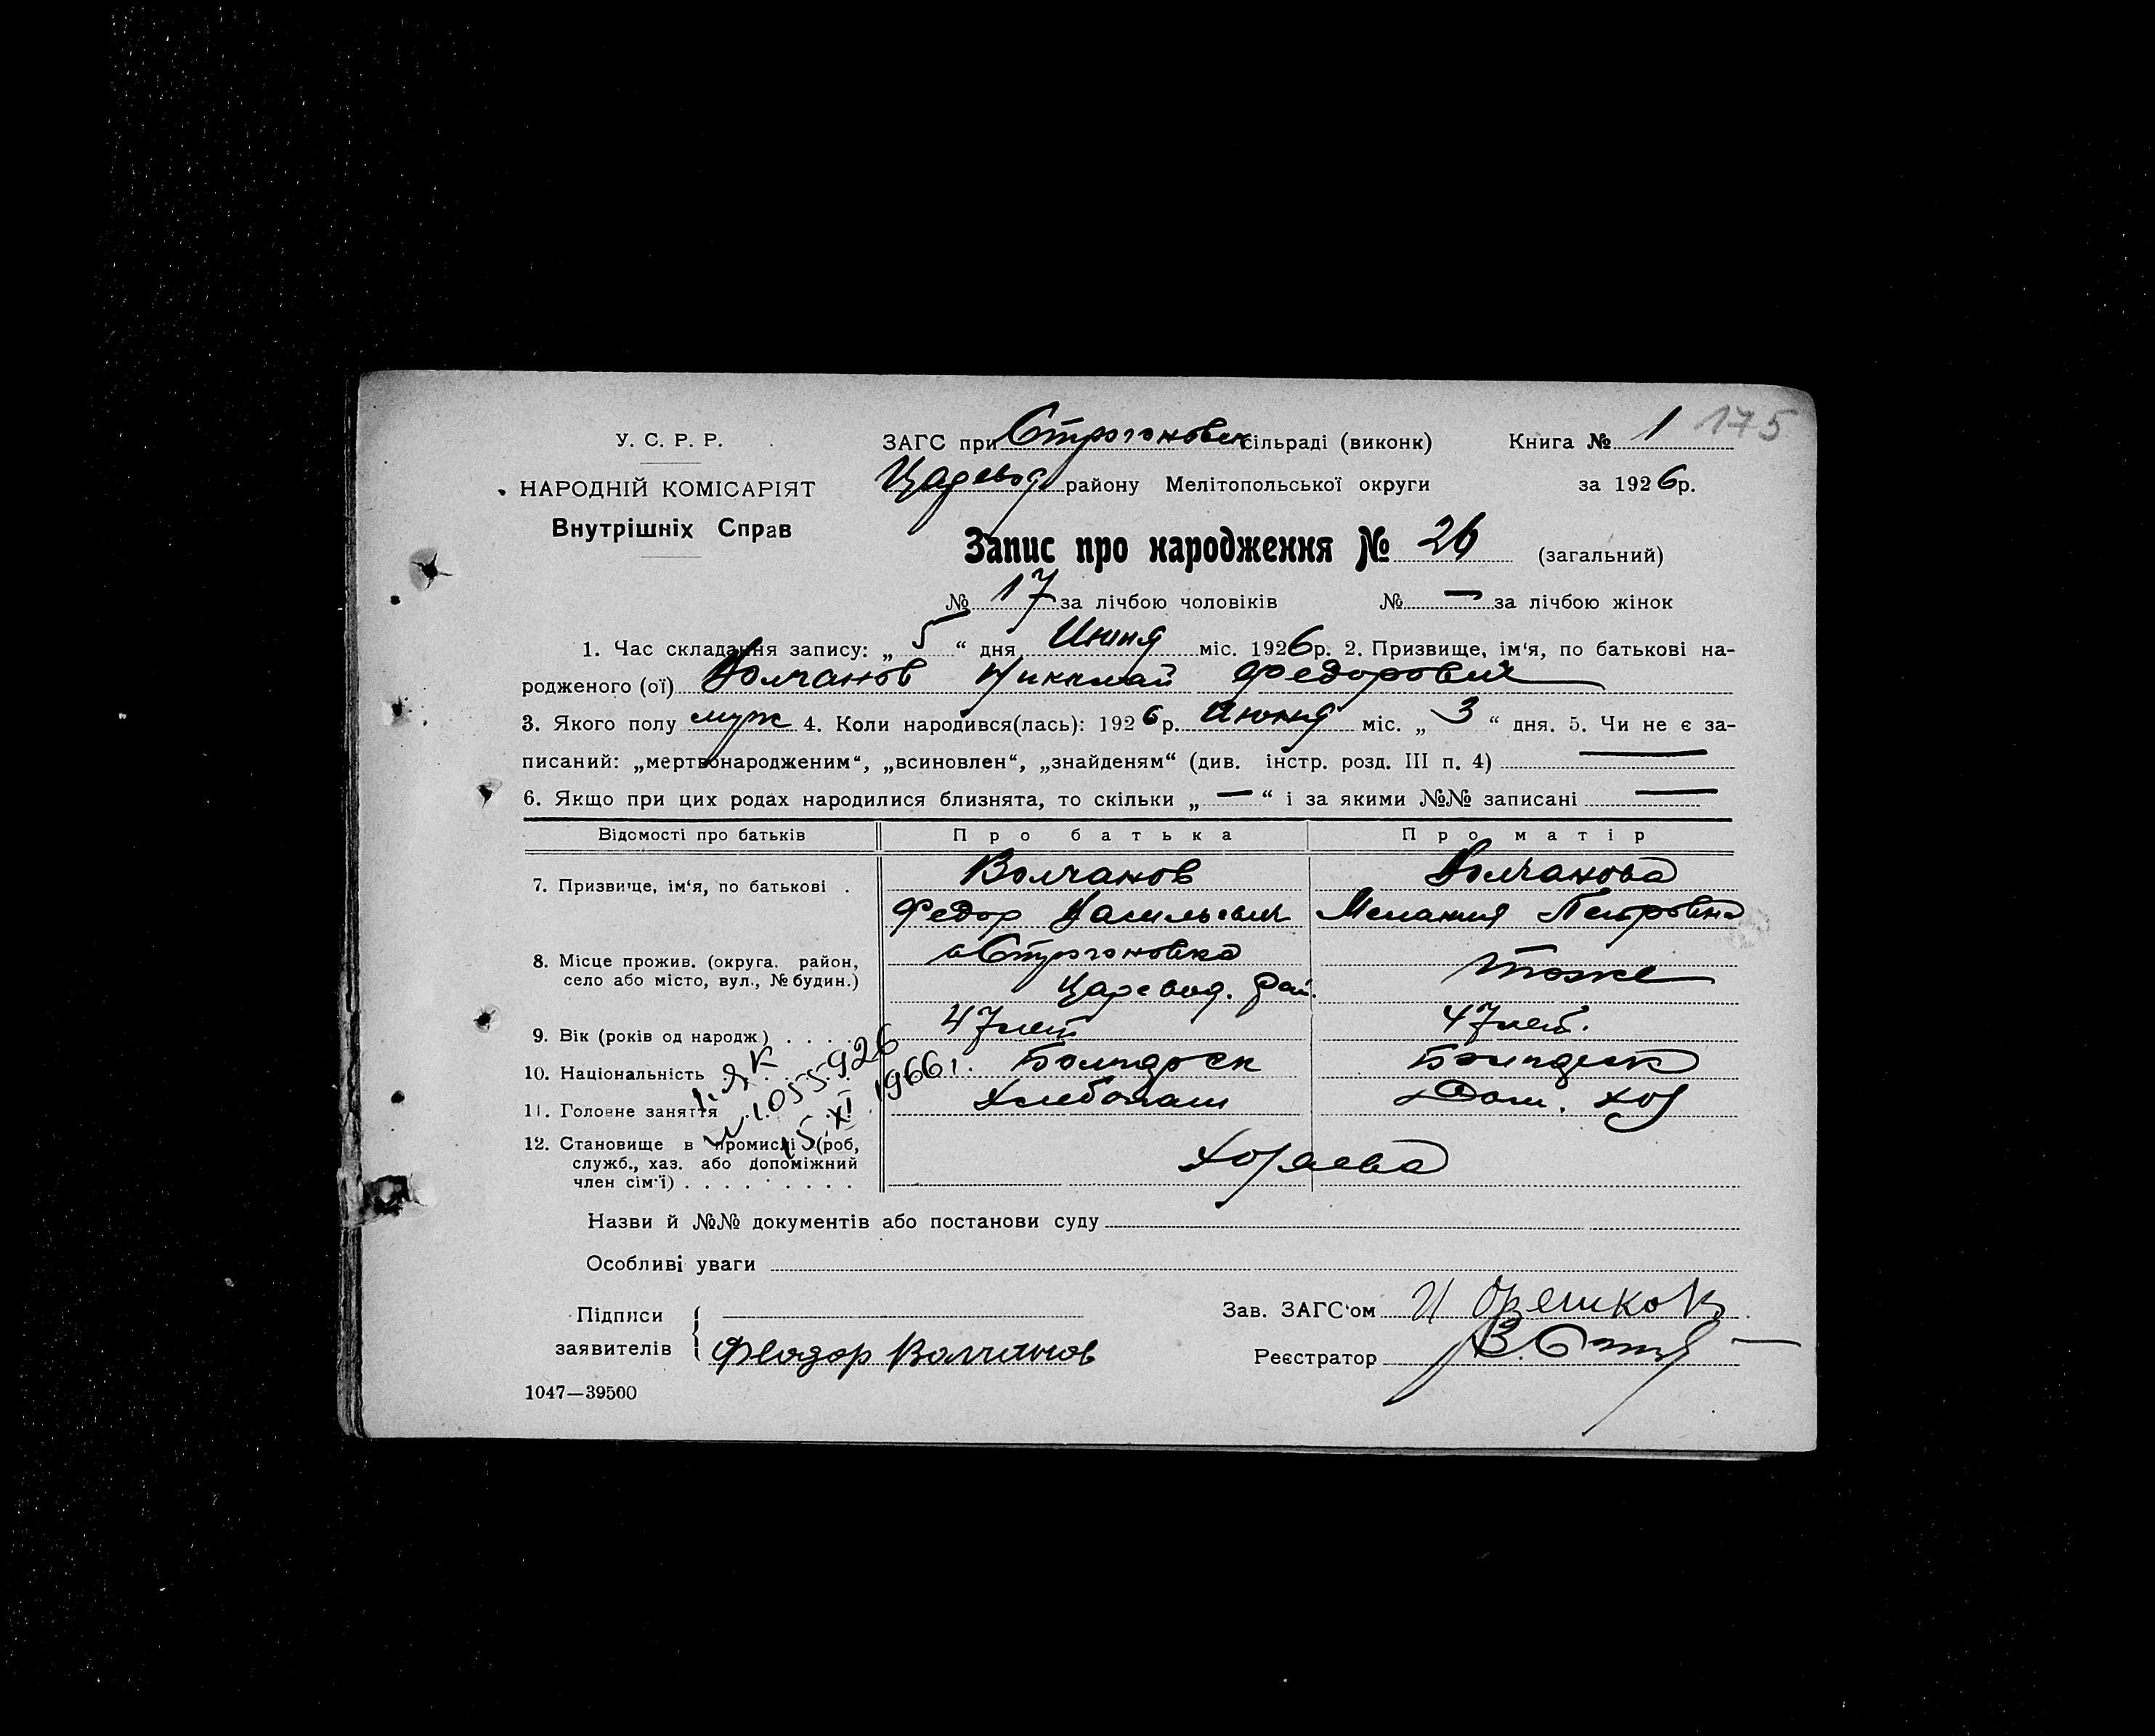 175
У. С. Р. Р.
НАРОДНІЙ КОМІСАРІЯТ
Внутрішніх Справ
ЗАГС при Строгоновск сільраді (виконк) Книга № 1
Царевод району Мелітопольської округи за 1926р.
Запис про народження № 26 (загальний)
№ 17 за лічбою чоловіків № — за лічбою жінок
1. Час складання запису: „ 5 “ дня Июня міс. 1926р. 2. Призвище, ім‘я, по батькові на-
родженого (ої) Волчанов Николай Федорович
3. Якого полу муж 4. Коли народився(лась): 1926р. Июня міс. „ 3 “ дня. 5. Чи не є за-
писаний: „мертвонародженим“, „всиновлен“, „знайденям“ (див. інстр. розд. III п. 4) —
6. Якщо при цих родах народилися близнята, то скільки „ — “ і за якими №№ записані —
Відомості про батьків Про батька Про матір
7. Призвище, ім‘я, по батькові . Волчанов Волчанова
Федор Васильевич Мелания Петровна
8. Місце прожив. (округа. район, с Строгоновка тоже
село або місто, вул., № будин.) Царевод. рай.
9. Вік (років од народж.) . . . . 47 лет 47 лет.
10. Національність Болгарск Болгарск
11. Головне заняття Хлебопаш Дом. хоз
1966 г.
12. Становище в промислі (роб,
служб., хаз. або допоміжний
член сім‘ї) . . . . . . . . . Хозяева
Назви й №№ документів або постанови суду
Особливі уваги
Підписи
заявителів Феодор Волчанов
Зав. ЗАГС‘ом
Реєстратор
1047—39500